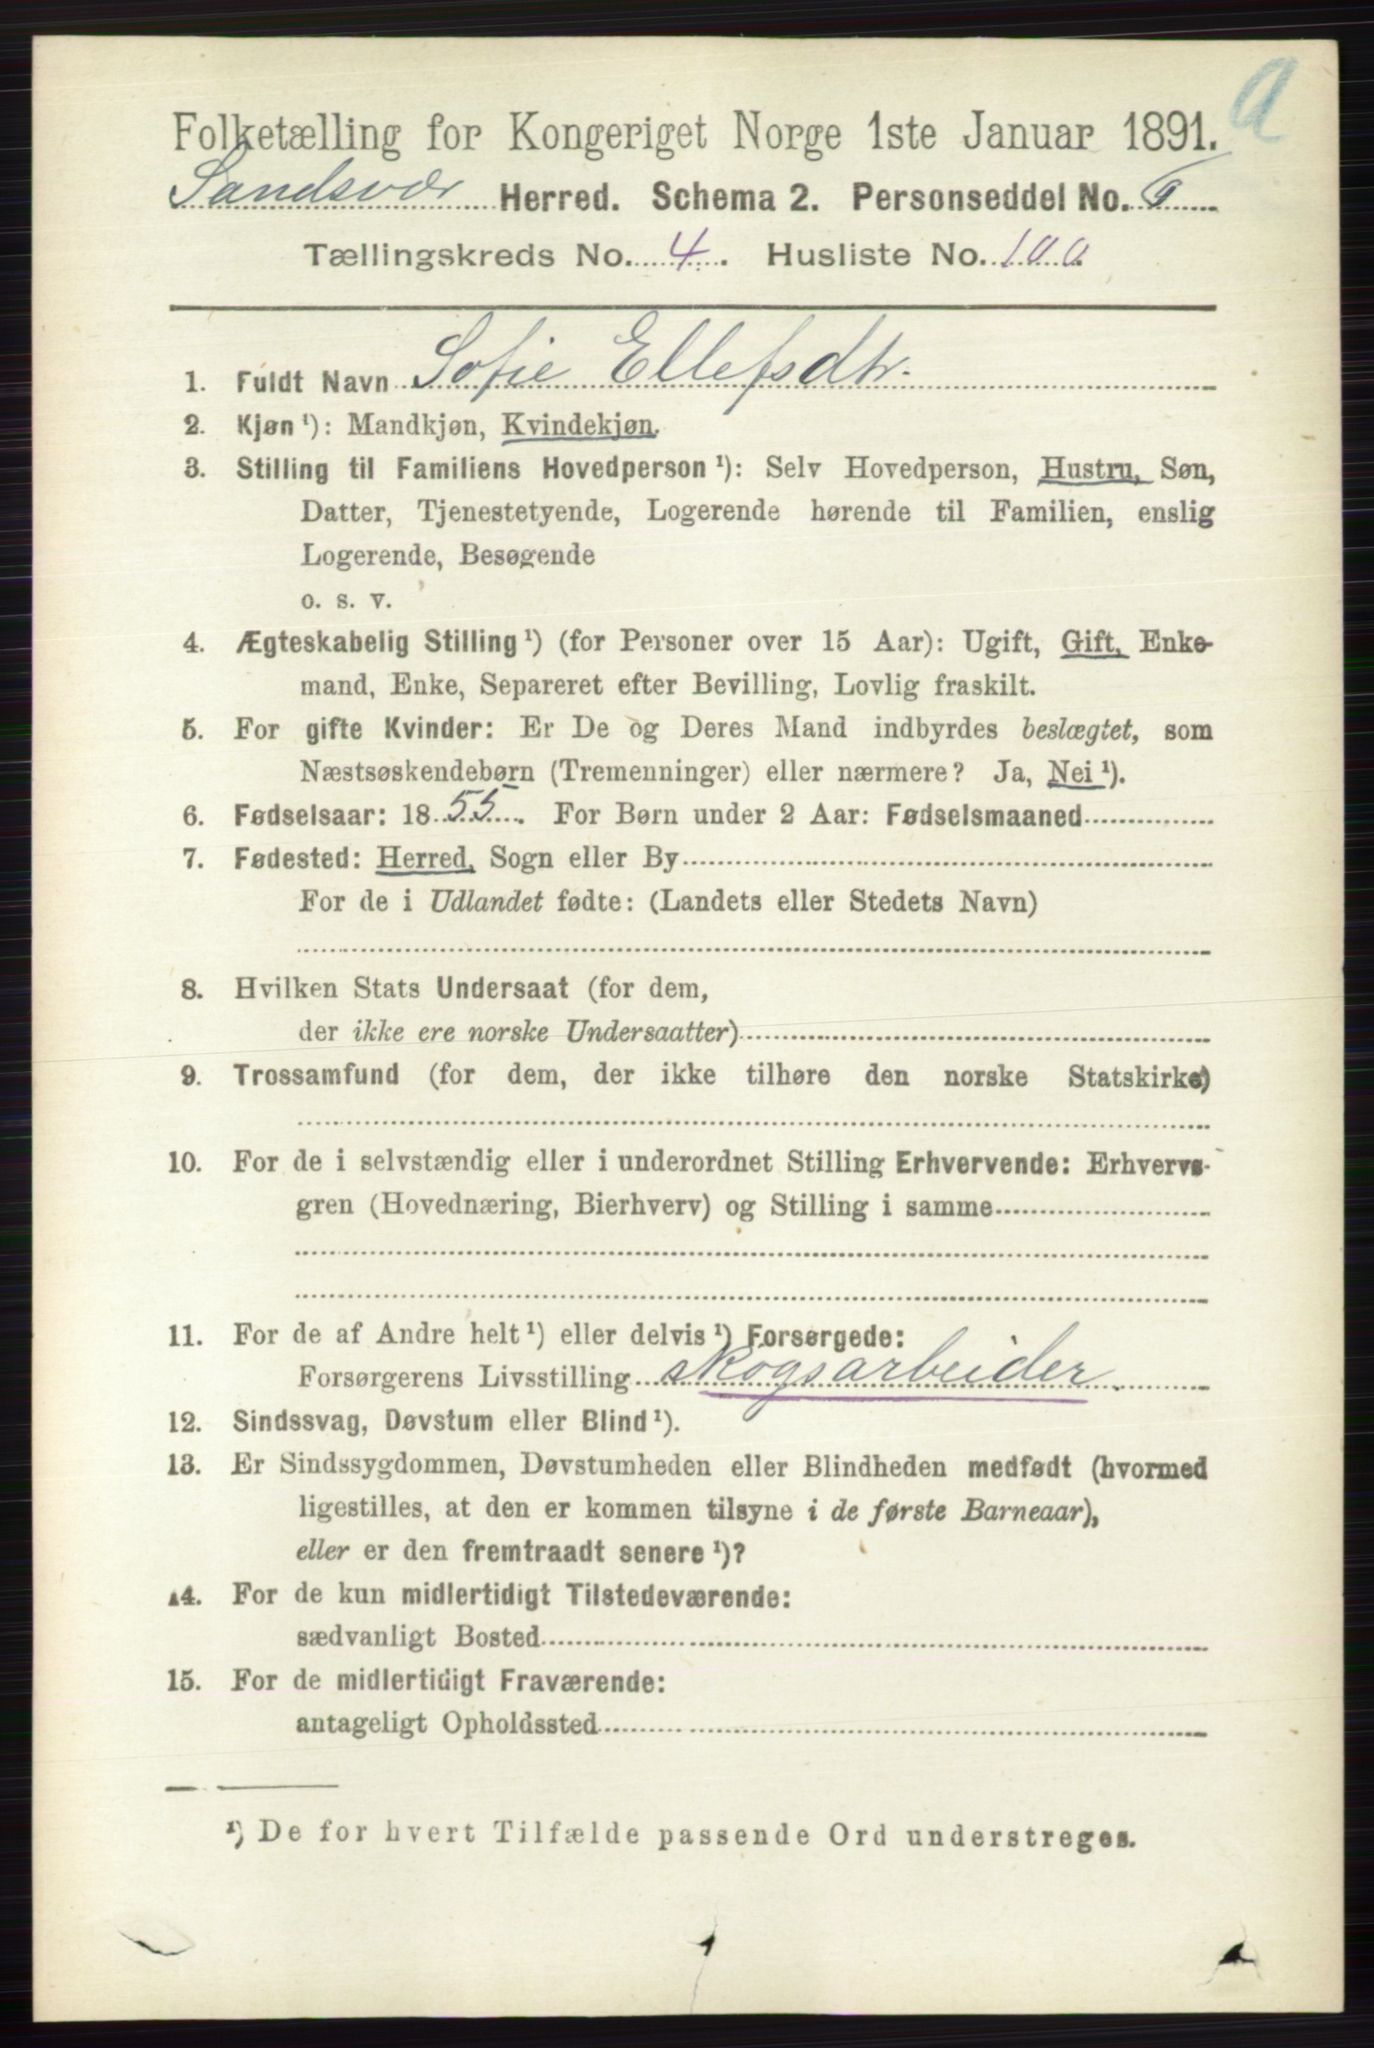 a
Folketælling for Kongeriget Norge 1ste Januar 1891.
Sandsvær Herred. Schema 2. Personseddel No.
Tællingskreds No. 4. Husliste No. 100
1. Fuldt Navn Sofie Ellefsdtr.
2. Kjøn ¹): Mandkjøn, Kvindekjøn.
3. Stilling til Familiens Hovedperson ¹): Selv Hovedperson, Hustru, Søn,
Datter, Tjenestetyende, Logerende hørende til Familien, enslig
Logerende, Besøgende
o. s. v.
4. Ægteskabelig Stilling ¹) (for Personer over 15 Aar): Ugift, Gift, Enke-
mand, Enke, Separeret efter Bevilling, Lovlig fraskilt.
5. For gifte Kvinder: Er De og Deres Mand indbyrdes beslægtet, som
Næstsøskendebørn (Tremenninger) eller nærmere? Ja, Nei ¹).
6. Fødselsaar: 1855. For Børn under 2 Aar: Fødselsmaaned
7. Fødested: Herred, Sogn eller By
For de i Udlandet fødte: (Landets eller Stedets Navn)
8. Hvilken Stats Undersaat (for dem,
der ikke ere norske Undersaatter)
9. Trossamfund (for dem, der ikke tilhøre den norske Statskirke)
10. For de i selvstændig eller i underordnet Stilling Erhvervende: Erhvervs-
gren (Hovednæring, Bierhverv) og Stilling i samme
11. For de af Andre helt ¹) eller delvis ¹) Forsørgede:
Forsørgerens Livsstilling skogsarbeider.
12. Sindssvag, Døvstum eller Blind ¹).
13. Er Sindssygdommen, Døvstumheden eller Blindheden medfødt (hvormed
ligestilles, at den er kommen tilsyne i de første Barneaar),
eller er den fremtraadt senere ¹)?
14. For de kun midlertidigt Tilstedeværende:
sædvanligt Bosted
15. For de midlertidigt Fraværende:
antageligt Opholdssted
¹) De for hvert Tilfælde passende Ord understreges.